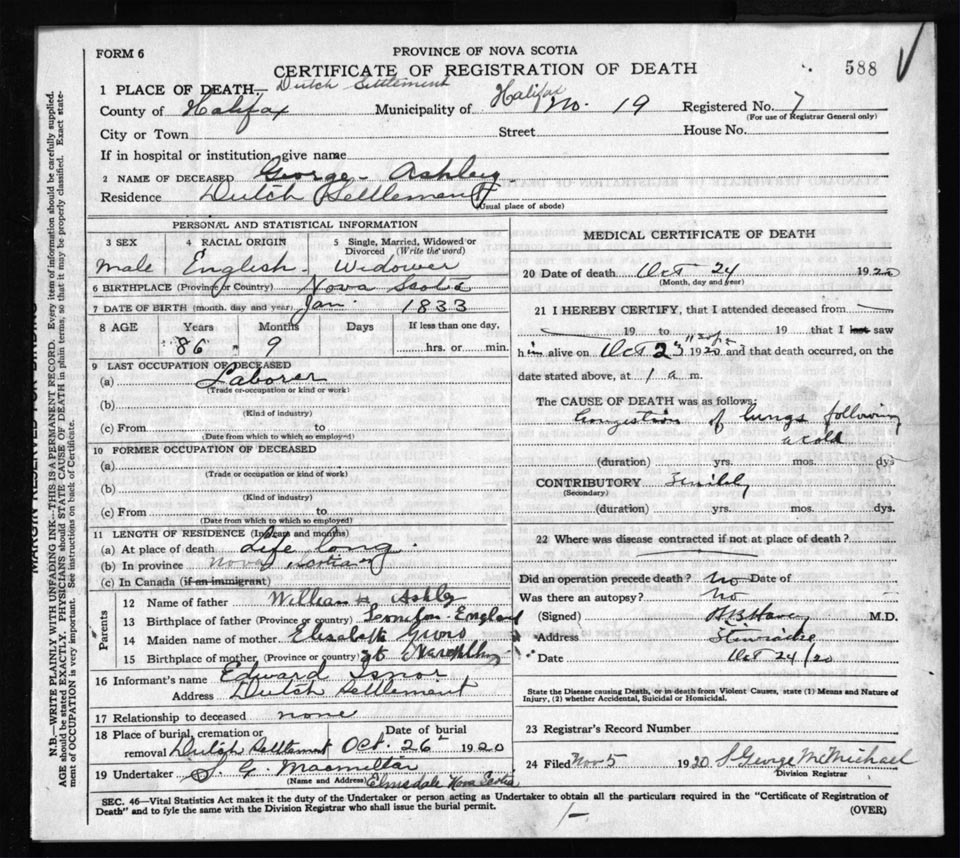 FORM 6
PROVINCE OF NOVA SCOTIA
CERTIFICATE OF REGISTRATION OF DEATH
588
1 PLACE OF DEATH Dutch Settlement
County of Halifax Municipality of Halifax No. 19 Registered No. 7
(For use of Registrar General only)
City or Town Street House No.
If in hospital or institution, give name
2 NAME OF DECEASED George Ashley
Residence Dutch Settlement
(Usual place of abode)
PERSONAL AND STATISTICAL INFORMATION
3 SEX 4 RACIAL ORIGIN 5 Single, Married, Widowed or Divorced (Write the word)
Male English Widower
6 BIRTHPLACE (Province or Country) Nova Scotia
7 DATE OF BIRTH (month, day and year) Jan. 1833
8 AGE Years Months Days If less than one day,
86 " 9 hrs. or min.
9 LAST OCCUPATION OF DECEASED
(a) Laborer
(Trade or occupation or kind or work)
(b)
(Kind of industry)
(c) From to
(Date from which to which so employed)
10 FORMER OCCUPATION OF DECEASED
(a)
(Trade or occupation or kind of work)
(b)
(Kind of industry)
(c) From to
(Date from which to which so employed)
11 LENGTH OF RESIDENCE (In years and months)
(a) At place of death Life long.
(b) In province Nova Scotia
(c) In Canada (if an immigrant)
Parents
12 Name of father William H Ashly
13 Birthplace of father (Province or Country) England
14 Maiden name of mother Elisabeth
15 Birthplace of mother (Province or country)
16 Informant's name Edward Isnor
Address Dutch Settlement
17 Relationship to deceased none
18 Place of burial, cremation or Date of burial
removal Dutch Settlement Oct. 26 1920
19 Undertaker S. G. Macmillar
(Name and Address) Elmsdale Nova Scotia
MEDICAL CERTIFICATE OF DEATH
20 Date of death Oct 24 1920
(Month, day and year)
21 I HEREBY CERTIFY, that I attended deceased from
19 to 19 that I last saw
him alive on Oct 23 1920 and that death occurred, on the
date stated above, at 1 a m.
The CAUSE OF DEATH was as follows:
Congestion of lungs following
a cold
(duration) yrs. mos. dys
CONTRIBUTORY Senility
(Secondary)
(duration) yrs. mos. dys.
22 Where was disease contracted if not at place of death?
Did an operation precede death? No Date of
Was there an autopsy? No
(Signed) M.D.
Address Stewiacke
Date Oct 24/20
State the Disease causing Death, or in death from Violent Causes, state (1) Means and Nature of
Injury, (2) whether Accidental, Suicidal or Homicidal.
23 Registrar's Record Number
24 Filed Nov 5 1920 S George McMichael
Division Registrar
SEC. 46—Vital Statistics Act makes it the duty of the Undertaker or person acting as Undertaker to obtain all the particulars required in the "Certificate of Registration of
Death" and to fyle the same with the Division Registrar who shall issue the burial permit.
(OVER)
MARGIN RESERVED FOR BINDING
N.B.—WRITE PLAINLY WITH UNFADING INK—THIS IS A PERMANENT RECORD. Every item of information should be carefully supplied.
AGE should be stated EXACTLY. PHYSICIANS should STATE CAUSE OF DEATH in plain terms, so that it may be properly classified. Exact state-
ment of OCCUPATION is very important. See instructions on back of Certificate.